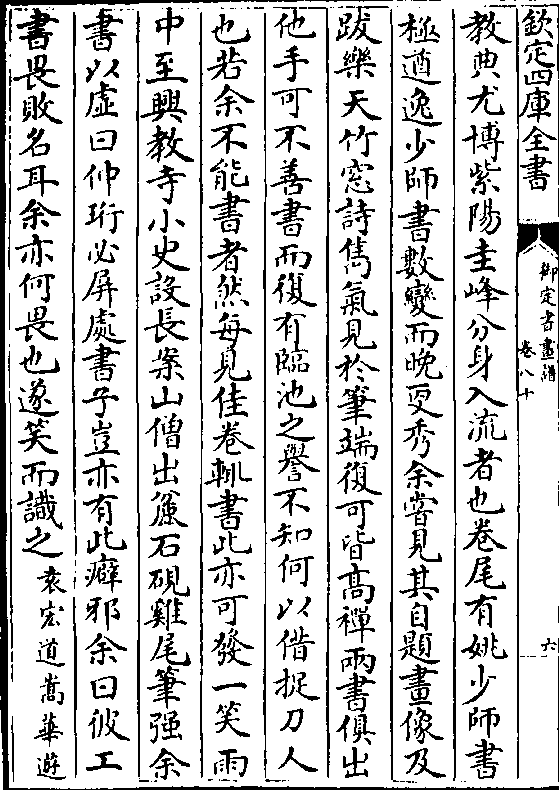 欽定四庫全書
御定書畫譜
卷八十
六
教典尤博紫陽圭峰分身入流者也卷尾有姚少師書
極遒逸少師書數變而晚更秀余嘗見其自題畫像及
跋樂天竹窓詩雋氣見於筆端復可皆高禪兩書俱出
他手可不善書而復有臨池之譽不知何以借捉刀人
也若余不能書者然每見佳卷輒書此亦可發一笑雨
中至興教寺小史設長案山僧出簏石硯雞尾筆强余
書以虛曰仲珩必屏處書子豈亦有此癖邪余曰彼工
書畏敗名耳余亦何畏也遂笑而識之袁宏道嵩華遊